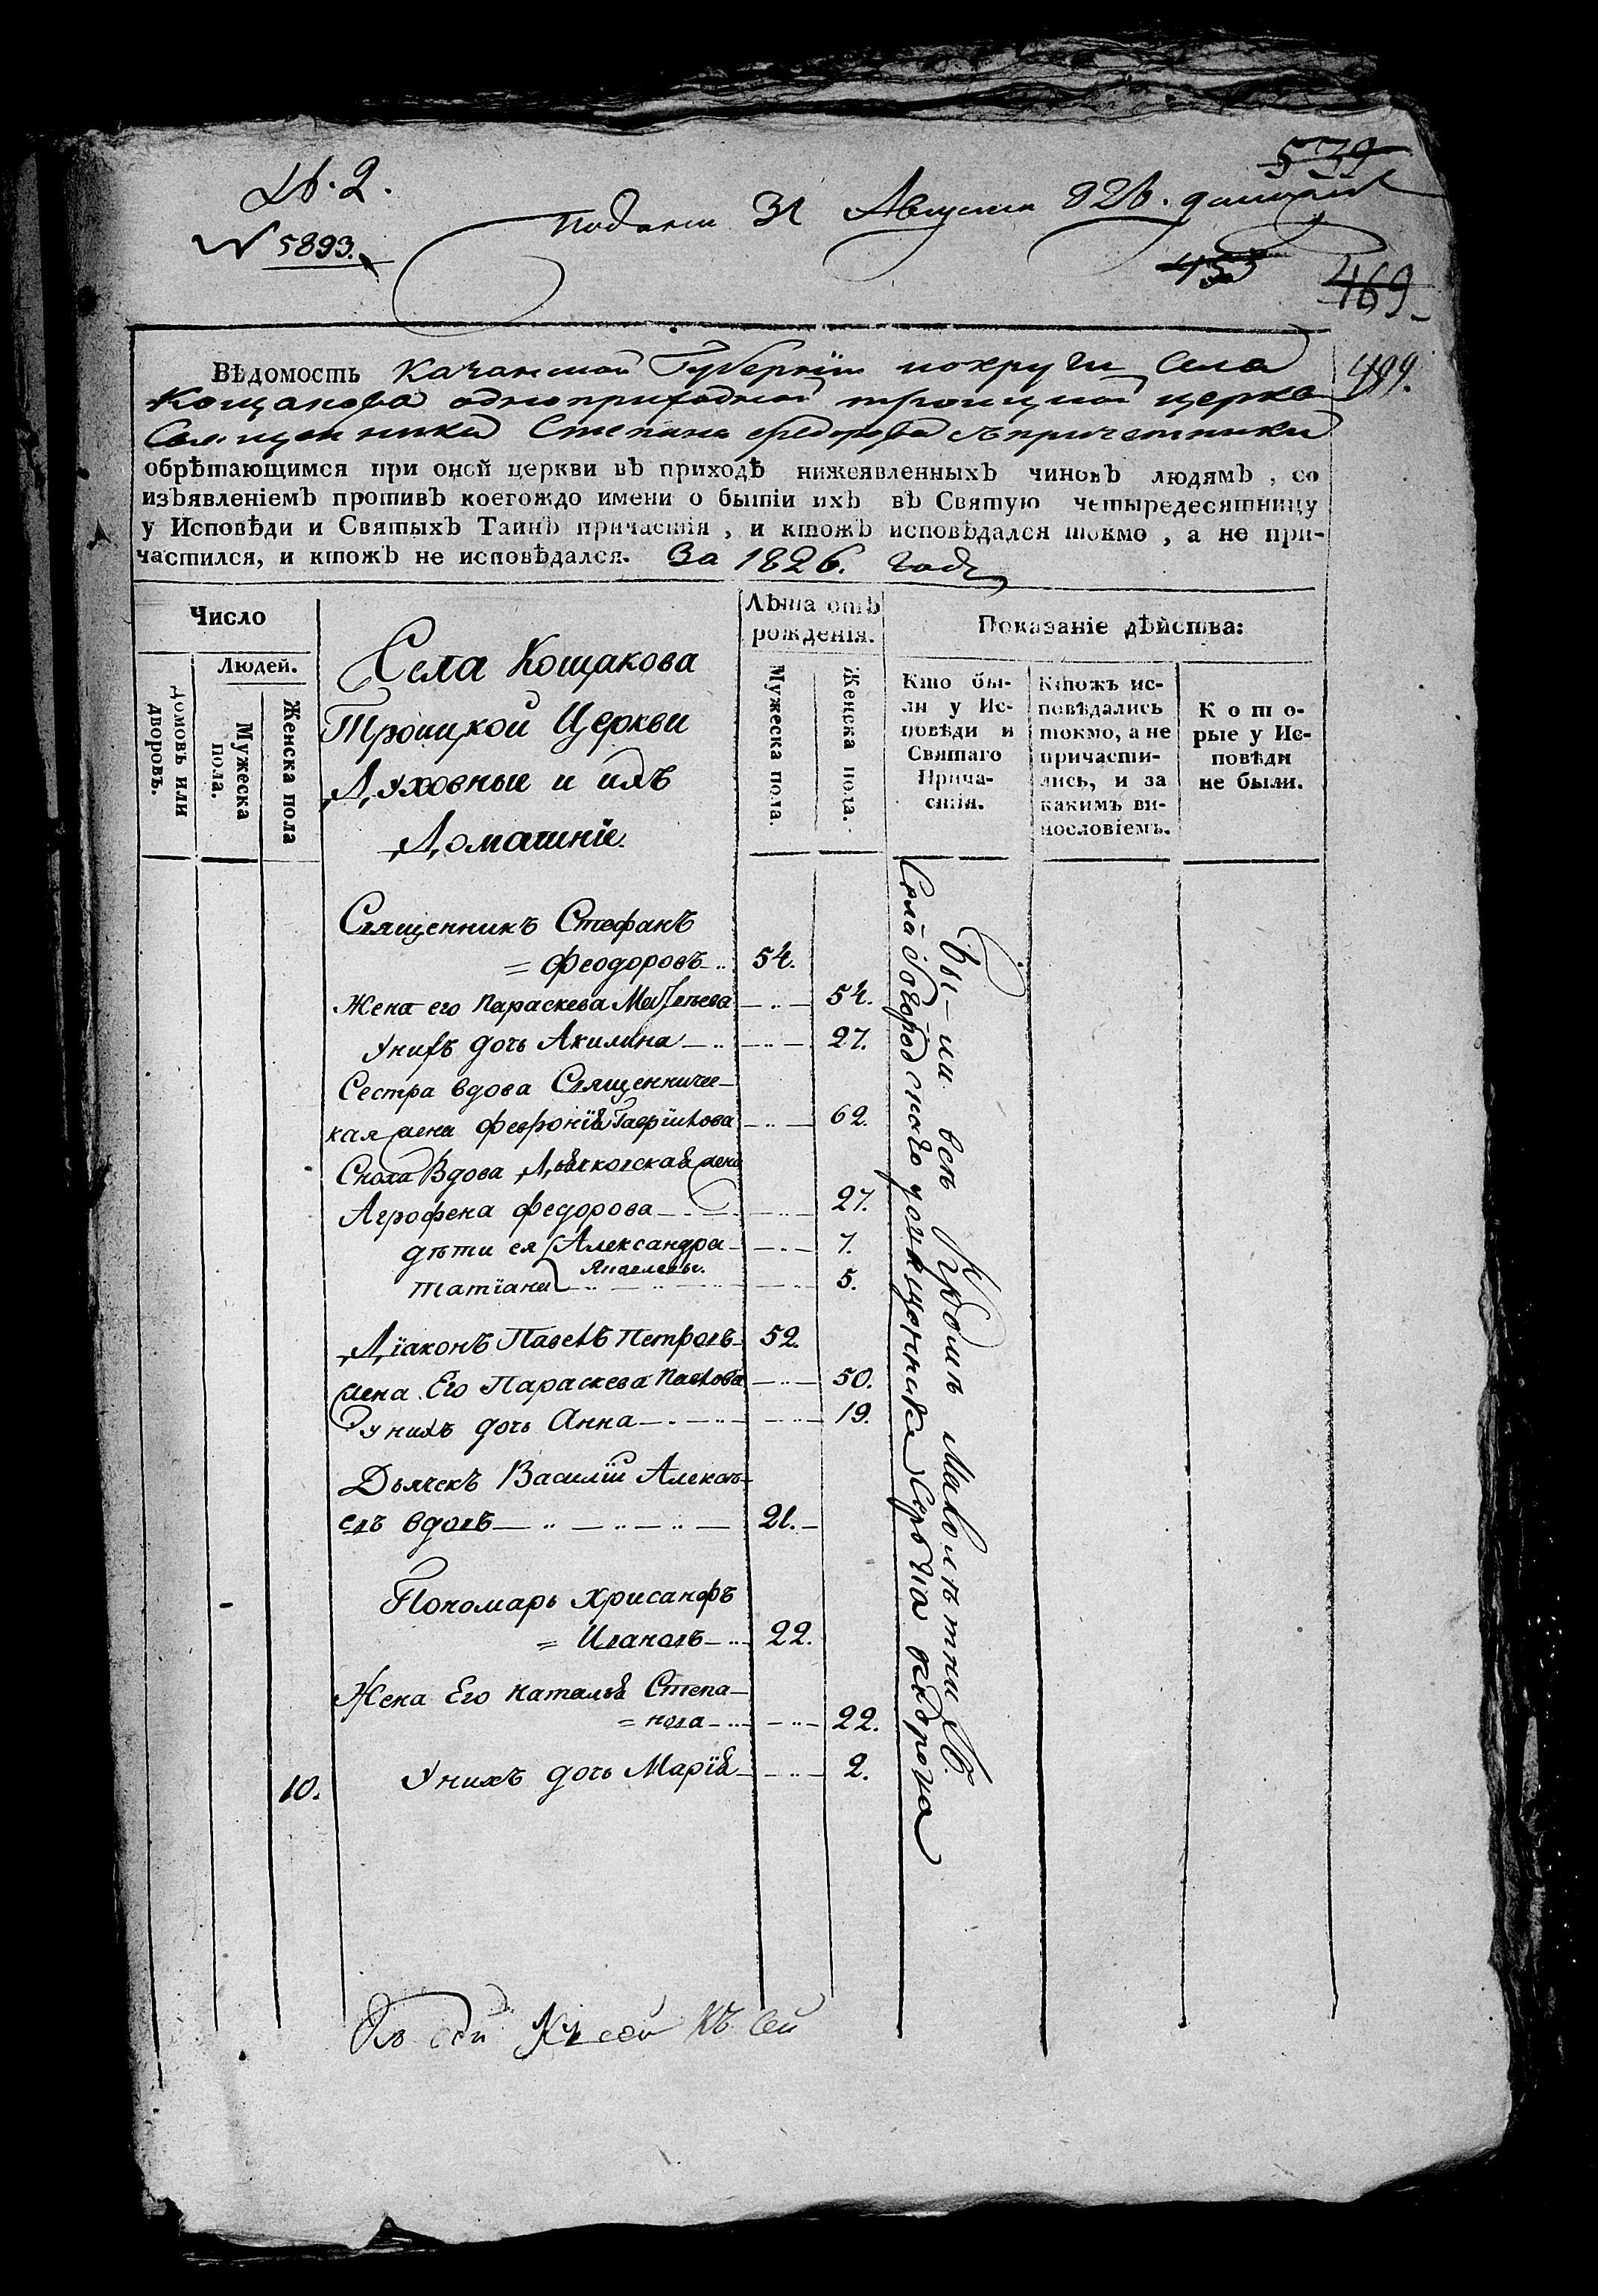 539
№ 5893.
Подана 31 Августа 826.
453
469
499.
Вѣдомость Казанской Губерніи и округи Села
Кощакова одноприходной троицкой церкви
Священника Степана Федорова съ причетники
обрѣтающимся при оной церкви въ приходѣ нижеявленныхъ чиновъ людямъ, со
изъявленіемъ противъ коегождо имени о бытіи ихъ въ Святую четыредесятницу
у Исповѣди и Святыхъ Таинъ причастія, и ктожъ исповѣдался токмо, а не при-
частился, и ктожъ не исповѣдался. За 1826. годъ
Число
Людей.
домовъ или дворовъ.
Мужеска пола.
Женска пола
Села Кощакова
Троицкой Церкви
Духовныи и ихъ
Домашніе.
Лѣта отъ
рожденія.
Мужеска пола.
Женска пола.
Показаніе дѣйства:
Кто бы-
ли у Ис-
повѣди и
Святаго
Прича-
стія.
Ктожъ ис-
повѣдались
токмо, а не
причасти-
лись, и за
какимъ ви-
нословіемъ.
Кото-
рые у Ис-
повѣди
не были.
Священникъ Стефанъ
= Феодоровъ 54.
Жена его Параскева Матѳеева 54.
У нихъ дочь Акилина 27.
Сестра вдова Священниче-
ская жена Феврониія Гаврилова 62.
Сноха Вдова Дьяконская жена
Агрофена Федорова 27.
дѣти ея Александра 7.
Татіана 5.
Діаконъ Павелъ Петровъ 52.
Жена Его Параскева Павлова 50.
У нихъ дочь Анна 19.
Дьячекъ Василій Алексѣ-
евъ вдовъ 21.
Пономарь Хрисанфъ
= Ивановъ 22.
Жена Его Наталья Степа-
= нова 22.
10. У нихъ дочь Марія 2.
Бы-ли всѣ Кромѣ Малолѣтни хъ.
къ сей Къ сей